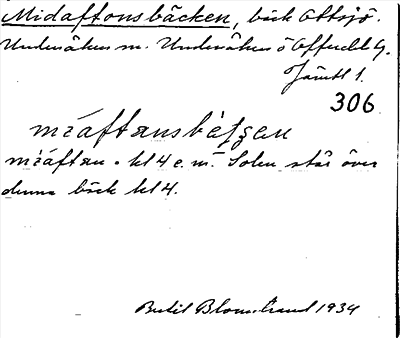 Midaftonsbäcken, bäck Ottsjö.
Undersåkers sn. Undersåkers o Offerdals tg.
Jämtl l.
306
miáftansbèʃʒen
miáftan = kl 4 e.m. Solen står över
denna bäck kl 4.
Bertil Blomstrand 1934